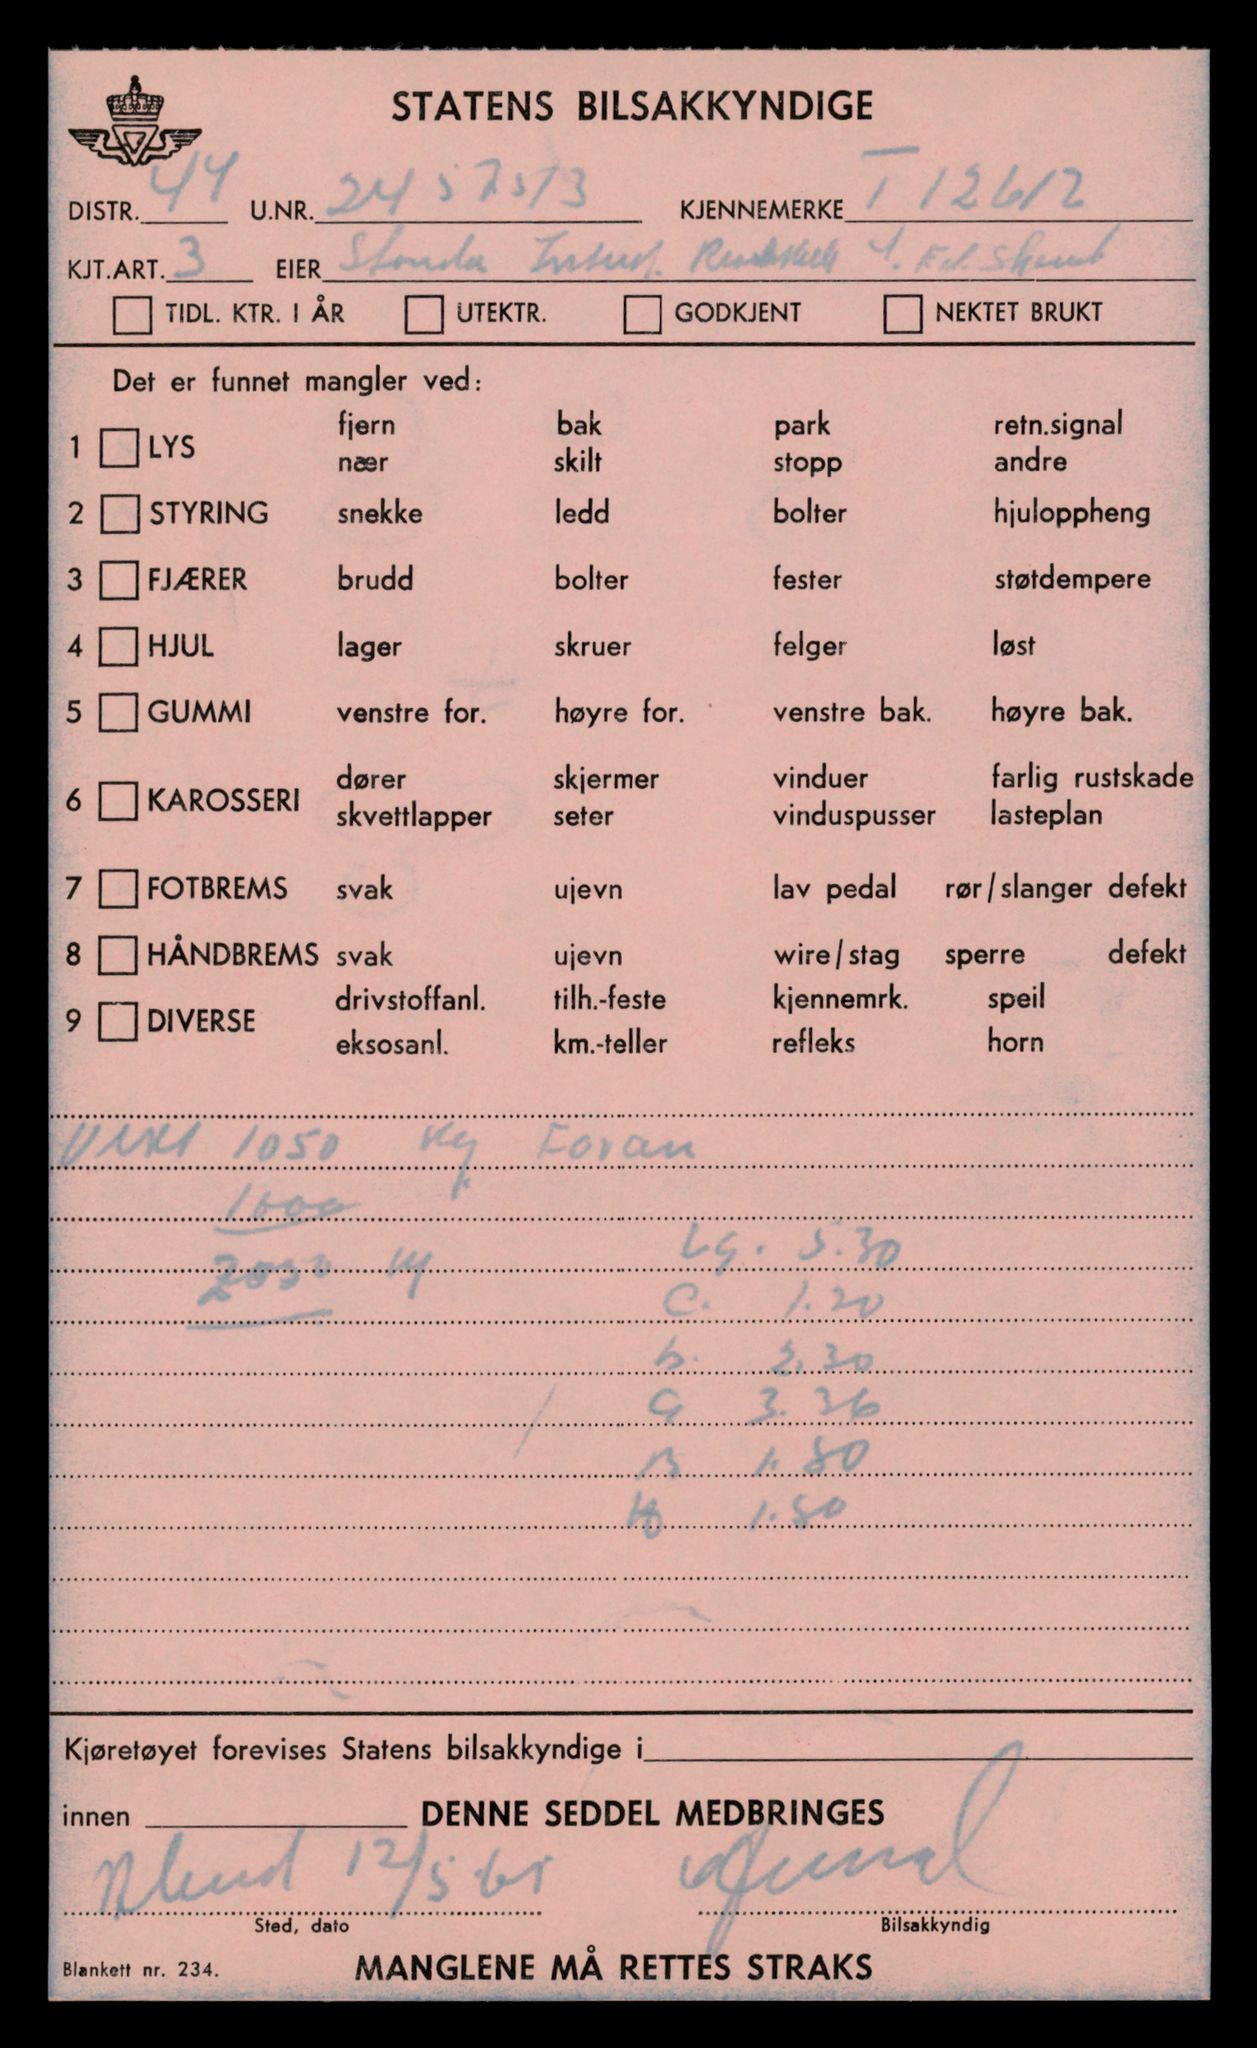 STATENS BILSAKKYNDIGE
DISTR. 44 U.NR. 2457513 KJENNEMERKE T 12612
KJT.ART. 3 EIER
TIDL. KTR. I ÅR UTEKTR. GODKJENT NEKTET BRUKT
Det er funnet mangler ved:
1 LYS fjern bak park retn.signal
nær skilt stopp andre
2 STYRING snekke ledd bolter hjuloppheng
3 FJÆRER brudd bolter fester støtdempere
4 HJUL lager skruer felger løst
5 GUMMI venstre for. høyre for. venstre bak. høyre bak.
6 KAROSSERI dører skjermer vinduer farlig rustskade
skvettlapper seter vinduspusser lasteplan
7 FOTBREMS svak ujevn lav pedal rør/slanger defekt
8 HÅNDBREMS svak ujevn wire/stag sperre defekt
9 DIVERSE drivstoffanl. tilh.-feste kjennemrk. speil
eksosanl. km.-teller refleks horn
Vekt 1050 kg Foran
1000
2050 kg Lg. 5.30
C. 1.20
b. 2.30
G 3.36
B 1.80
H 1.80
Kjøretøyet forevises Statens bilsakkyndige i
innen DENNE SEDDEL MEDBRINGES
12/5-65
Sted, dato Bilsakkyndig
Blankett nr. 234. MANGLENE MÅ RETTES STRAKS